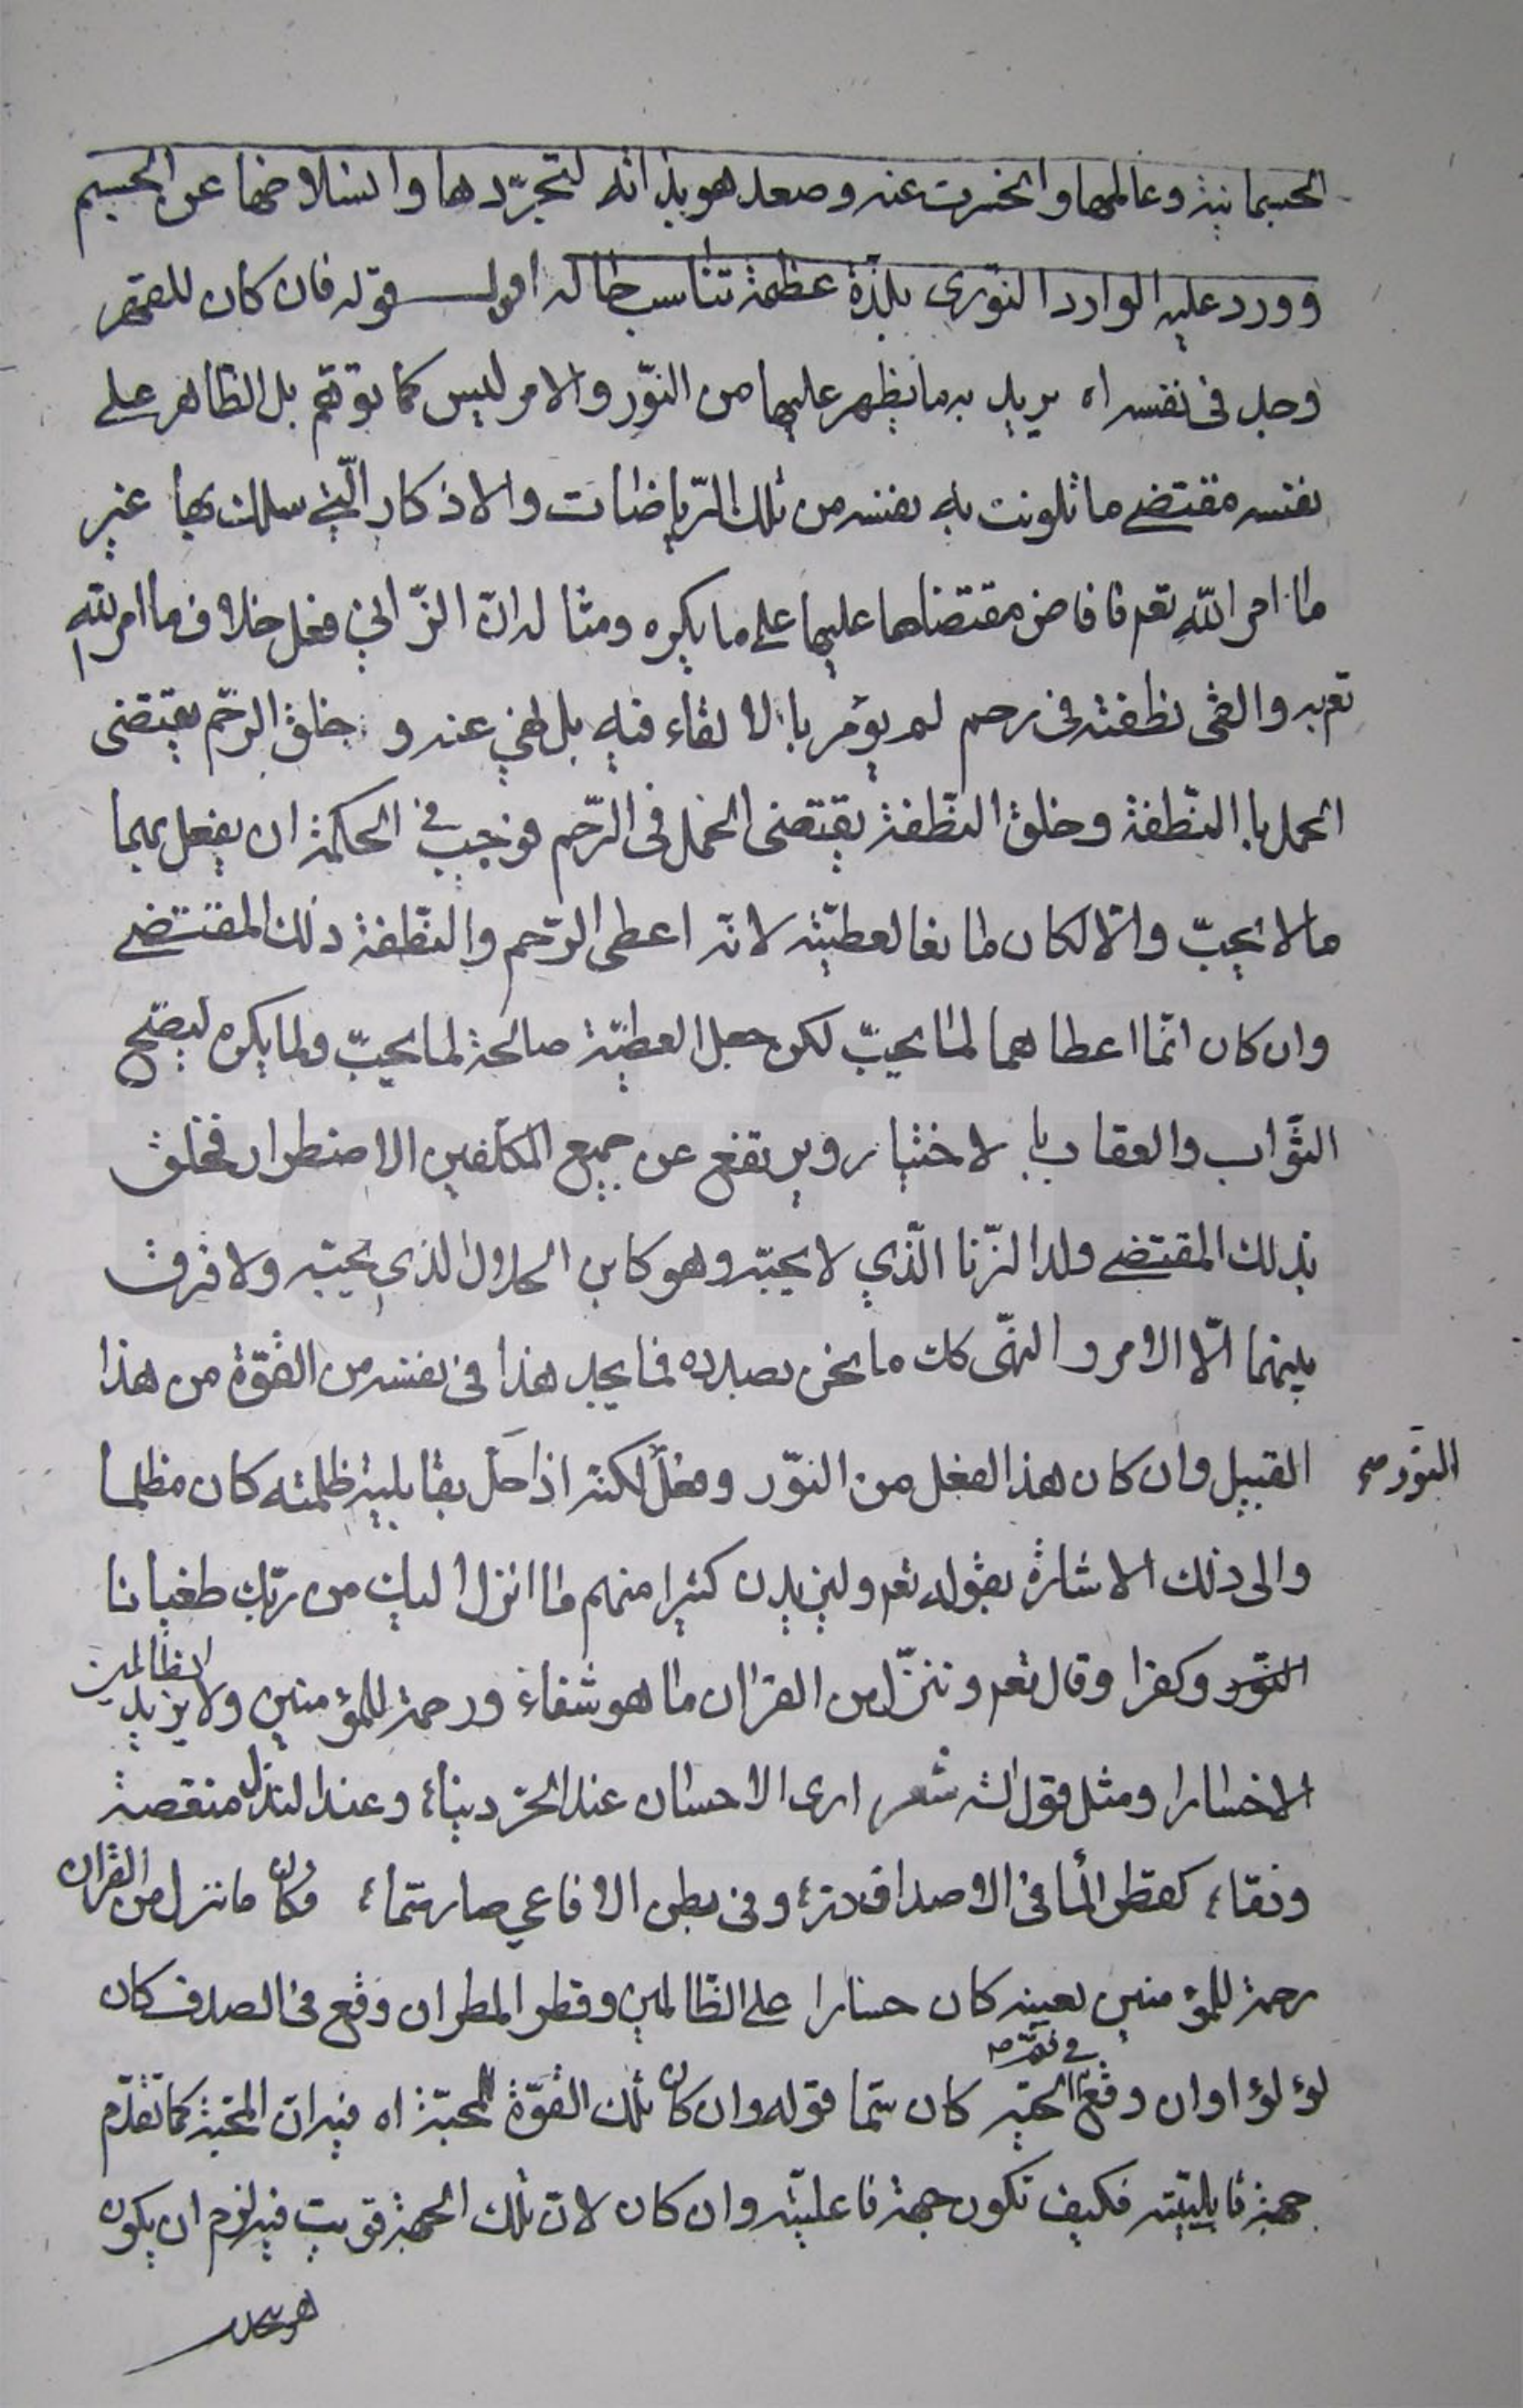 الجسمانية وعالمها وانخسرت عنه وصعد هو بذاته لتجرّدها وانسلاخها عن الجسم
وورد عليه الوارد النوّرى بلذّة عظيمة تناسب حاله اقول قوله فان كان للقهر
وجد فى نفسه اه يريد به ما يظهر عليها من النوّر والامر ليس كما توهّم بل الظاهر على
نفسه مقتضى ما تلونت به نفسه من تلك الرّياضات والاذكار الّتي سلك بها غير
ما امر الله تعم فافاض مقتضاها عليها على ما يكره ومثاله انّ الزّاني فعل خلاف ما امر الله
تع به والقى نطفته فى رحم لم يؤمر بالالقاء فيه بل نهي عنه و خلق الرّحم يقتضى
الحمل با النّطفة وخلق النّطفة يقتضى الحمل فى الرّحم فوجب في الحكمة ان يفعل بهما
ما لا يحبّ والّا لكان مانعا لعطيّته لانه اعطى الرّحم والنّطفة ذلك المقتضى
وان كان انّما اعطاهما لما يحبّ لكن جعل العطيّة صالحة لما يحبّ ولما يكره ليصّح
الثّواب والعقاب با لاختيار ويرتفع عن جميع المكلّفين الاضطرار فخلق
بذلك المقتضى ولد الزّنا الّذي لا يحبّه وهو كابن الحلال الذي يحبّه ولا فرق
بينهما الّا الامر والنهّى كك ما نحن بصدده فما يجد هذا فى نفسه من القوّة من هذا
القبيل وان كان هذا الفعل من النوّر وفعل لكنه اذا حلّ بقابلية ظلمته كان مظلما
النوّر صح
والى ذلك الاشارة بقوله تعم وليزيدن كثيرا منهم ما انزل اليك من ربّك طغيانا
النوّر وكفرا وقال تعم وننزّل من القرٰان ما هو شفاء ورحمة للمؤمنين ولا يزيد الظالمين
الا خسارا ومثل قول الشه شعر ارى الاحسان عند الحرّ دينا، وعند النذل منقصة
وذمّا، كقطر الما فى الاصداف درّ، وفى بطن الافاعي صار سمّا، وكان ما نزل من القرٰان
رحمة للمؤمنين بعينه كان خسارا على الظّالمين وقطر المطر ان وقع فى الصدف كان
لؤلؤا وان وقع في فم الحيّة كان سمّا قوله وان كان تلك القوّة المحبّة اه فيه انّ المحبّة كما تقدّم
جهة قابليّته فكيف تكون جهة فاعليّته وان كان لانّ تلك الجهة قويت فيه لزم ان يكون